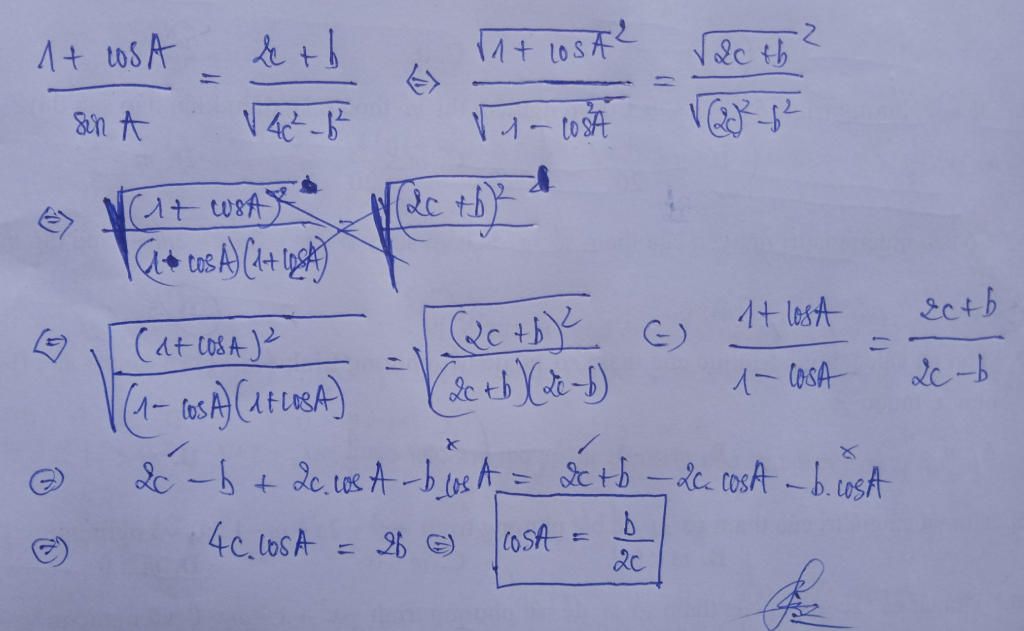 (1 + cosA)/(sin A) = (2c + b)/(√(4c² - b²)) ⇔ (√(1 + cosA)²)/(√(1 - cos²A)) = (√(2c + b)²)/(√((2c)² - b²))
⇔ √((1 + cosA)²/((1 - cosA)(1 + cosA))) = √((2c + b)²
⇔ √((1 + cosA)²/((1 - cosA)(1 + cosA))) = √((2c + b)²/((2c + b)(2c - b))) ⇔ (1 + cosA)/(1 - cosA) = (2c + b)/(2c - b)
⇔ 2c - b + 2c.cosA - b.cosA = 2c + b - 2c.cosA - b.cosA
⇔ 4c.cosA = 2b ⇔ cosA = b/(2c)